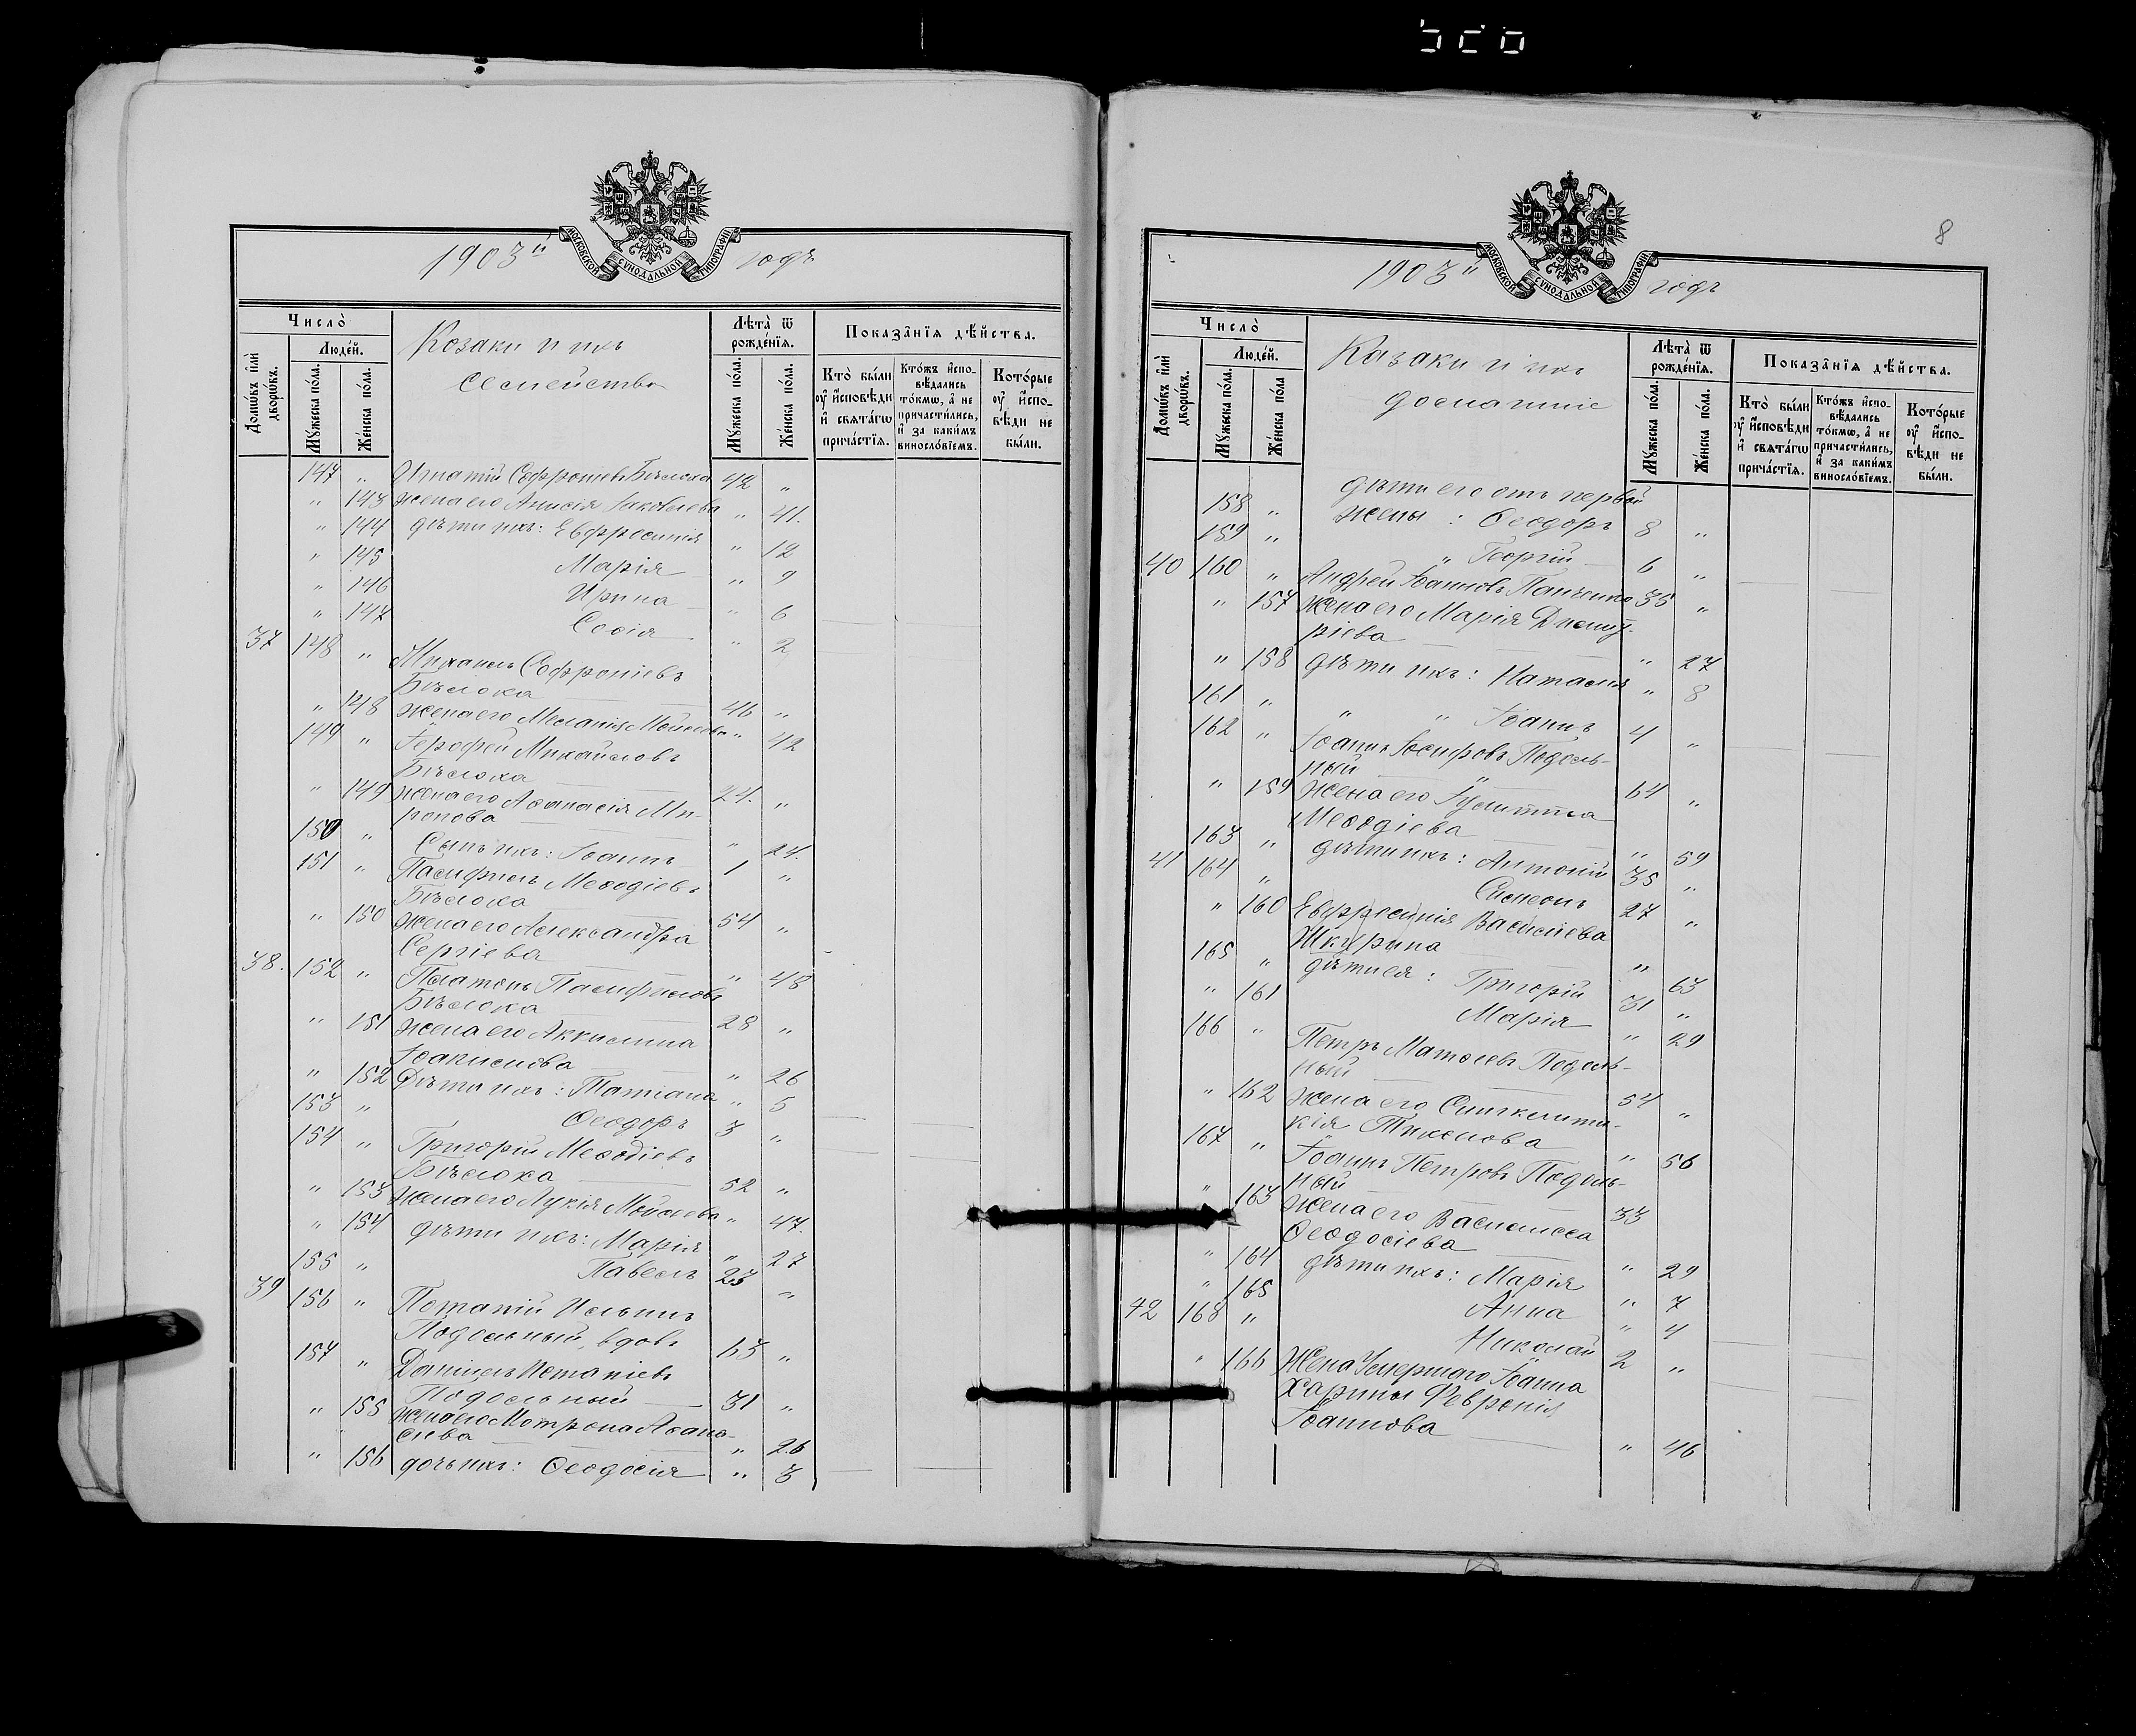 8
1903й годъ
МОСКОВСКОЙ СѴНОДАЛЬНОЙ ТИПОГРАФІИ
Число̀
Домѡ́въ и҆лѝ дворѡ́въ.
Люде́й.
Мꙋ́жеска по́ла.
Же́нска по́ла.
Козаки и ихъ
семейства
Лѣ́та ѿ рожде́нїѧ.
Мꙋ́жеска по́ла.
Же́нска по́ла.
Показа̑нїѧ дѣ́йства.
Кто̀ бы́ли оу҆ и҆сповѣ́ди и҆ свѧта́гѡ прича́стїѧ.
Кто́жъ и҆сповѣ́дались то́кмѡ, а҆ не причасти́лись, и҆ за каки́мъ виносло́вїемъ.
Кото́рые оу҆ и҆сповѣ́ди не бы́ли.
147 " Игнатій Софроніевъ Бѣлоха 42 "
" 143 жена его Анисія Іаковлева " 41.
" 144 дѣти ихъ: Евфросинія " 12
" 145 Марія " 9
" 146 Ирина " 6
" 147 Софія " 2
37 148 " Михаилъ Софроніевъ
Бѣлоха 46 "
" 148 жена его Меланія Мойсеева " 42
149 " Іерофей Михайловъ
Бѣлоха 24. "
" 149 жена его Аѳанасія Ми-
ронова " 24.
150 " Сынъ ихъ: Іоаннъ 1 "
151 " Памфилъ Меѳодіевъ
Бѣлоха 54 "
" 150 жена его Александра
Сергіева " 48
38. 152 " Платонъ Памфиловъ
Бѣлоха 28 "
" 151 жена его Аккилина
Іоакимова " 26
" 152 Дѣти ихъ: Татіана " 5
153 " Ѳеодоръ 3 "
154 " Григорій Меѳодіевъ
Бѣлоха 52 "
" 153 жена его Лукія Мойсеева " 47.
" 154 дѣти ихъ: Марія " 27
155 " Павелъ 23 "
39 156 " Потапій Ильинъ
Подольный, вдовъ 63 "
157 " Даніилъ Потапіевъ
Подольный 31 "
" 155 жена его Мотрона Аѳана-
сіева " 26
" 156 дочь ихъ: Ѳеодосія " 3
1903й годъ
МОСКОВСКОЙ СѴНОДАЛЬНОЙ ТИПОГРАФІИ
Число̀
Домѡ́въ и҆лѝ дворѡ́въ.
Люде́й.
Мꙋ́жеска по́ла.
Же́нска по́ла
Казаки и ихъ
домашніе
Лѣ́та ѿ рожде́нїѧ.
Мꙋ́жеска по́ла.
Же́нска по́ла.
Показа̑нїѧ дѣ́йства.
Кто̀ бы́ли оу҆ и҆сповѣ́ди и҆ свѧта́гѡ прича́стїѧ.
Кто́жъ и҆сповѣ́дались то́кмѡ, а҆ не причасти́лись, и҆ за каки́мъ виносло́вїемъ.
Кото́рые оу҆ и҆сповѣ́ди не бы́ли.
дѣти его отъ первой
158 " жены: Ѳеодоръ 8 "
159 " " Георгій 6 "
40 160 " Андрей Іоанновъ Панченко 35 "
" 157 жена его Марія Димит-
ріева " 27
" 158 дѣти ихъ: Наталія " 8
161 " " " Іоаннъ 4 "
162 " Іоаннъ Іосифовъ Подоль-
ный 64 "
" 159 жена его Іулитта
Меѳодіева " 59
163 " дѣти ихъ: Антоній 35 "
41 164 " Симеонъ 27 "
" 160 Евфросинія Василіева
Шкурина " 63
165 " дѣти ея: Григорій 31 "
" 161 Марія " 29
166 " Петръ Матѳіевъ Подоль-
ный 54 "
" 162 жена его Синклити-
кія Тихонова " 56
167 " Іоаннъ Петровъ Подоль-
ный 33
" 163 жена его Василисса
Ѳеодосіева " 29
" 164 дѣти ихъ: Марія " 7
" 165 Анна " 4
42 168 " Николай 2 "
" 166 Жена умершаго Іоанна
Харины Февронія
Іоаннова " 46